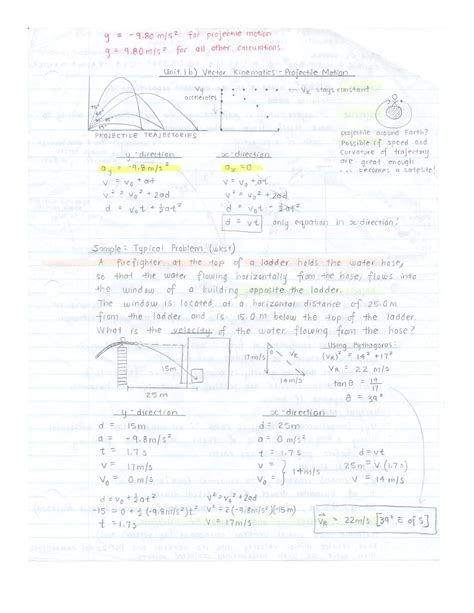 g = -9.80 m/s² for projectile motion
g = 9.80 m/s² for all other calculations.
Unit 1b) Vector Kinematics - Projectile Motion
Vy accelerates
VR stays constant
75°
45°
PROJECTILE TRAJECTORIES
projectile around Earth?
Possible if speed and
curvature of trajectory
are great enough
... becomes a satellite!
y-direction
x-direction
ay = -9.8m/s²
ax = 0
v = v₀ + at
v = v₀ + at
v² = v₀² + 2ad
v² = v₀² + 2ad
d = v₀t + ½at²
d = v₀t + ½at²
d = vt only equation in x-direction!
Sample: Typical Problem (wkst)
A firefighter at the top of a ladder holds the water hose,
so that the water flowing horizontally from the hose, flows into
the window of a building opposite the ladder.
The window is located at a horizontal distance of 25.0m
from the ladder and is 15.0m below the top of the ladder.
What is the velocity of the water flowing from the hose?
15m
25m
17m/s
θ
VR
14m/s
Using Pythagoras:
(VR)² = 14² + 17²
VR = 22 m/s
tanθ =
θ = 39°
y-direction
x-direction
d = 15m
d = 25m
a = -9.8m/s²
a = 0m/s²
t = 1.7s
t = 1.7s
d = vt
V = 17m/s
V =
V₀ = 0m/s
V₀ =
14m/s
25m = V(1.7s)
14m/s = V
d = v₀ + ½at²
v² = v₀² + 2ad
-15 = 0 + ½(-9.8m/s²)t²
v² = 2(-9.8m/s²)(-15m)
t = 1.7s
v = 17m/s
VR = 22m/s [39° E of S]